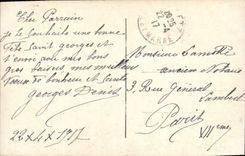 Cher Parrain
je te souhaite une bonne
fête saint georges et
t'envoie mes bons
gros baisers mes meilleurs
vœux de bonheur et santé
georges Denis
22 x 4 x 1917
Monsieur Camille
ancien Notaire
3. Rue Général
Camberet
Paris
VIIème